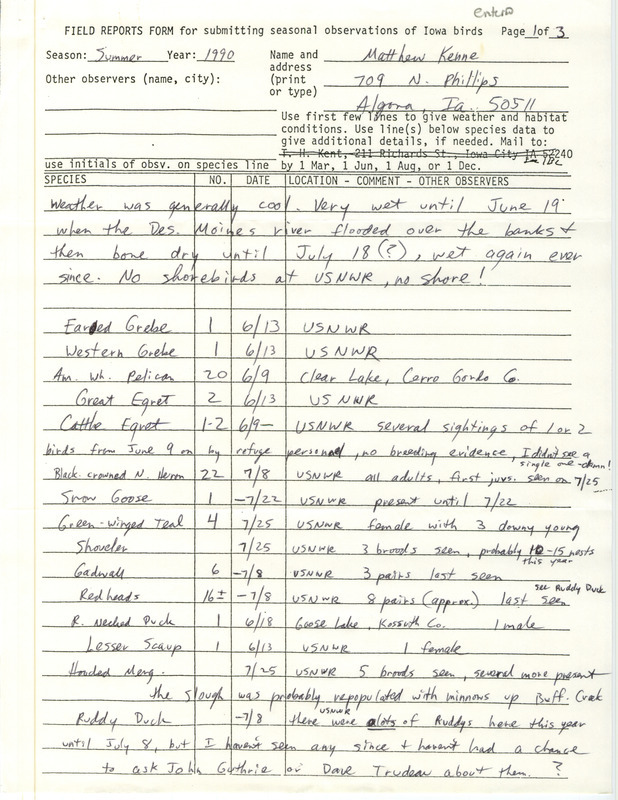 entered
FIELD REPORTS FORM for submitting seasonal observations of Iowa birds Page 1 of 3
Season: Summer Year: 1990 Name and Matthew Kenne
address
Other observers (name, city): (print 709 N. Phillips
or type)
Algona, Ia. 50511
Use first few lines to give weather and habitat
conditions. Use line(s) below species data to
give additional details, if needed. Mail to:
T. H. Kent, 211 Richards St., Iowa City IA 52240
use initials of obsv. on species line by 1 Mar, 1 Jun, 1 Aug, or 1 Dec.
SPECIES NO. DATE LOCATION - COMMENT - OTHER OBSERVERS
Weather was generally cool. Very wet until June 19
when the Des. Moines river flooded over the banks &
then bone dry until July 18(?), wet again ever
since. No shorebirds at USNWR, no shore!
Eared Grebe 1 6/13 USNWR
Western Grebe 1 6/13 USNWR
Am. Wh. Pelican 20 6/9 Clear Lake, Cerro Gordo Co.
Great Egret 2 6/13 USNWR
Cattle Egret 1-2 6/9- USNWR several sightings of 1 or 2
birds from June 9 on by refuge personnel, no breeding evidence, I didn't see a
single one-damn!
Black-crowned N. Heron 22 7/8 USNWR all adults, first juvs. seen on 7/25
Snow Goose 1 -7/22 USNWR present until 7/22
Green-winged Teal 4 7/25 USNWR female with 3 downy young
Shoveler 7/25 USNWR 3 broods seen, probably 10-15 nests
this year
Gadwall 6 -7/8 USNWR 3 pairs last seen
see Ruddy Duck
Redheads 16± -7/8 USNWR 8 pairs (approx.) last seen
R. Necked Duck 1 6/18 Goose Lake, Kossuth Co. 1 male
Lesser Scaup 1 6/13 USNWR 1 female
Hooded Merg. 7/25 USNWR 5 broods seen, several more present
the slough was probably repopulated with minnows up Buff. Creek
USNWR
Ruddy Duck -7/8 there were lots of Ruddys here this year
until July 8, but I haven't seen any since & haven't had a chance
to ask John Guthrie or Dave Trudeau about them. ?